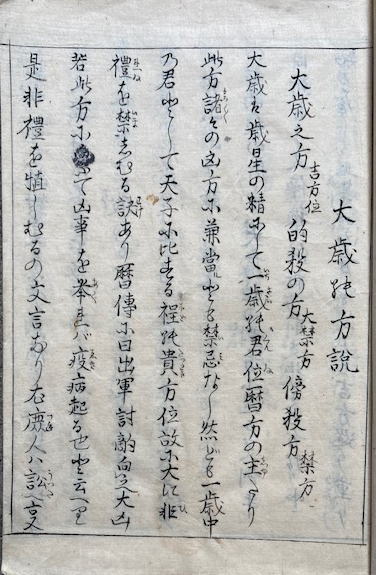 大歳之方説
大歳之方吉方位 的殺の方大禁方 傍殺方禁方
大歳ハ歳星の精にて一歳之君位暦方の主たり
此方諸々の凶方に兼當とも禁忌なし然ども一歳中
乃君として天子に比する程之貴方位故に大に非
禮を禁しむる訣あり暦傳に曰出軍討敵向へ大凶
若此方にて凶事を挙れバ疫病起る也と云へり
是非禮を慎しむるの文言なり右庶人ハ訟言